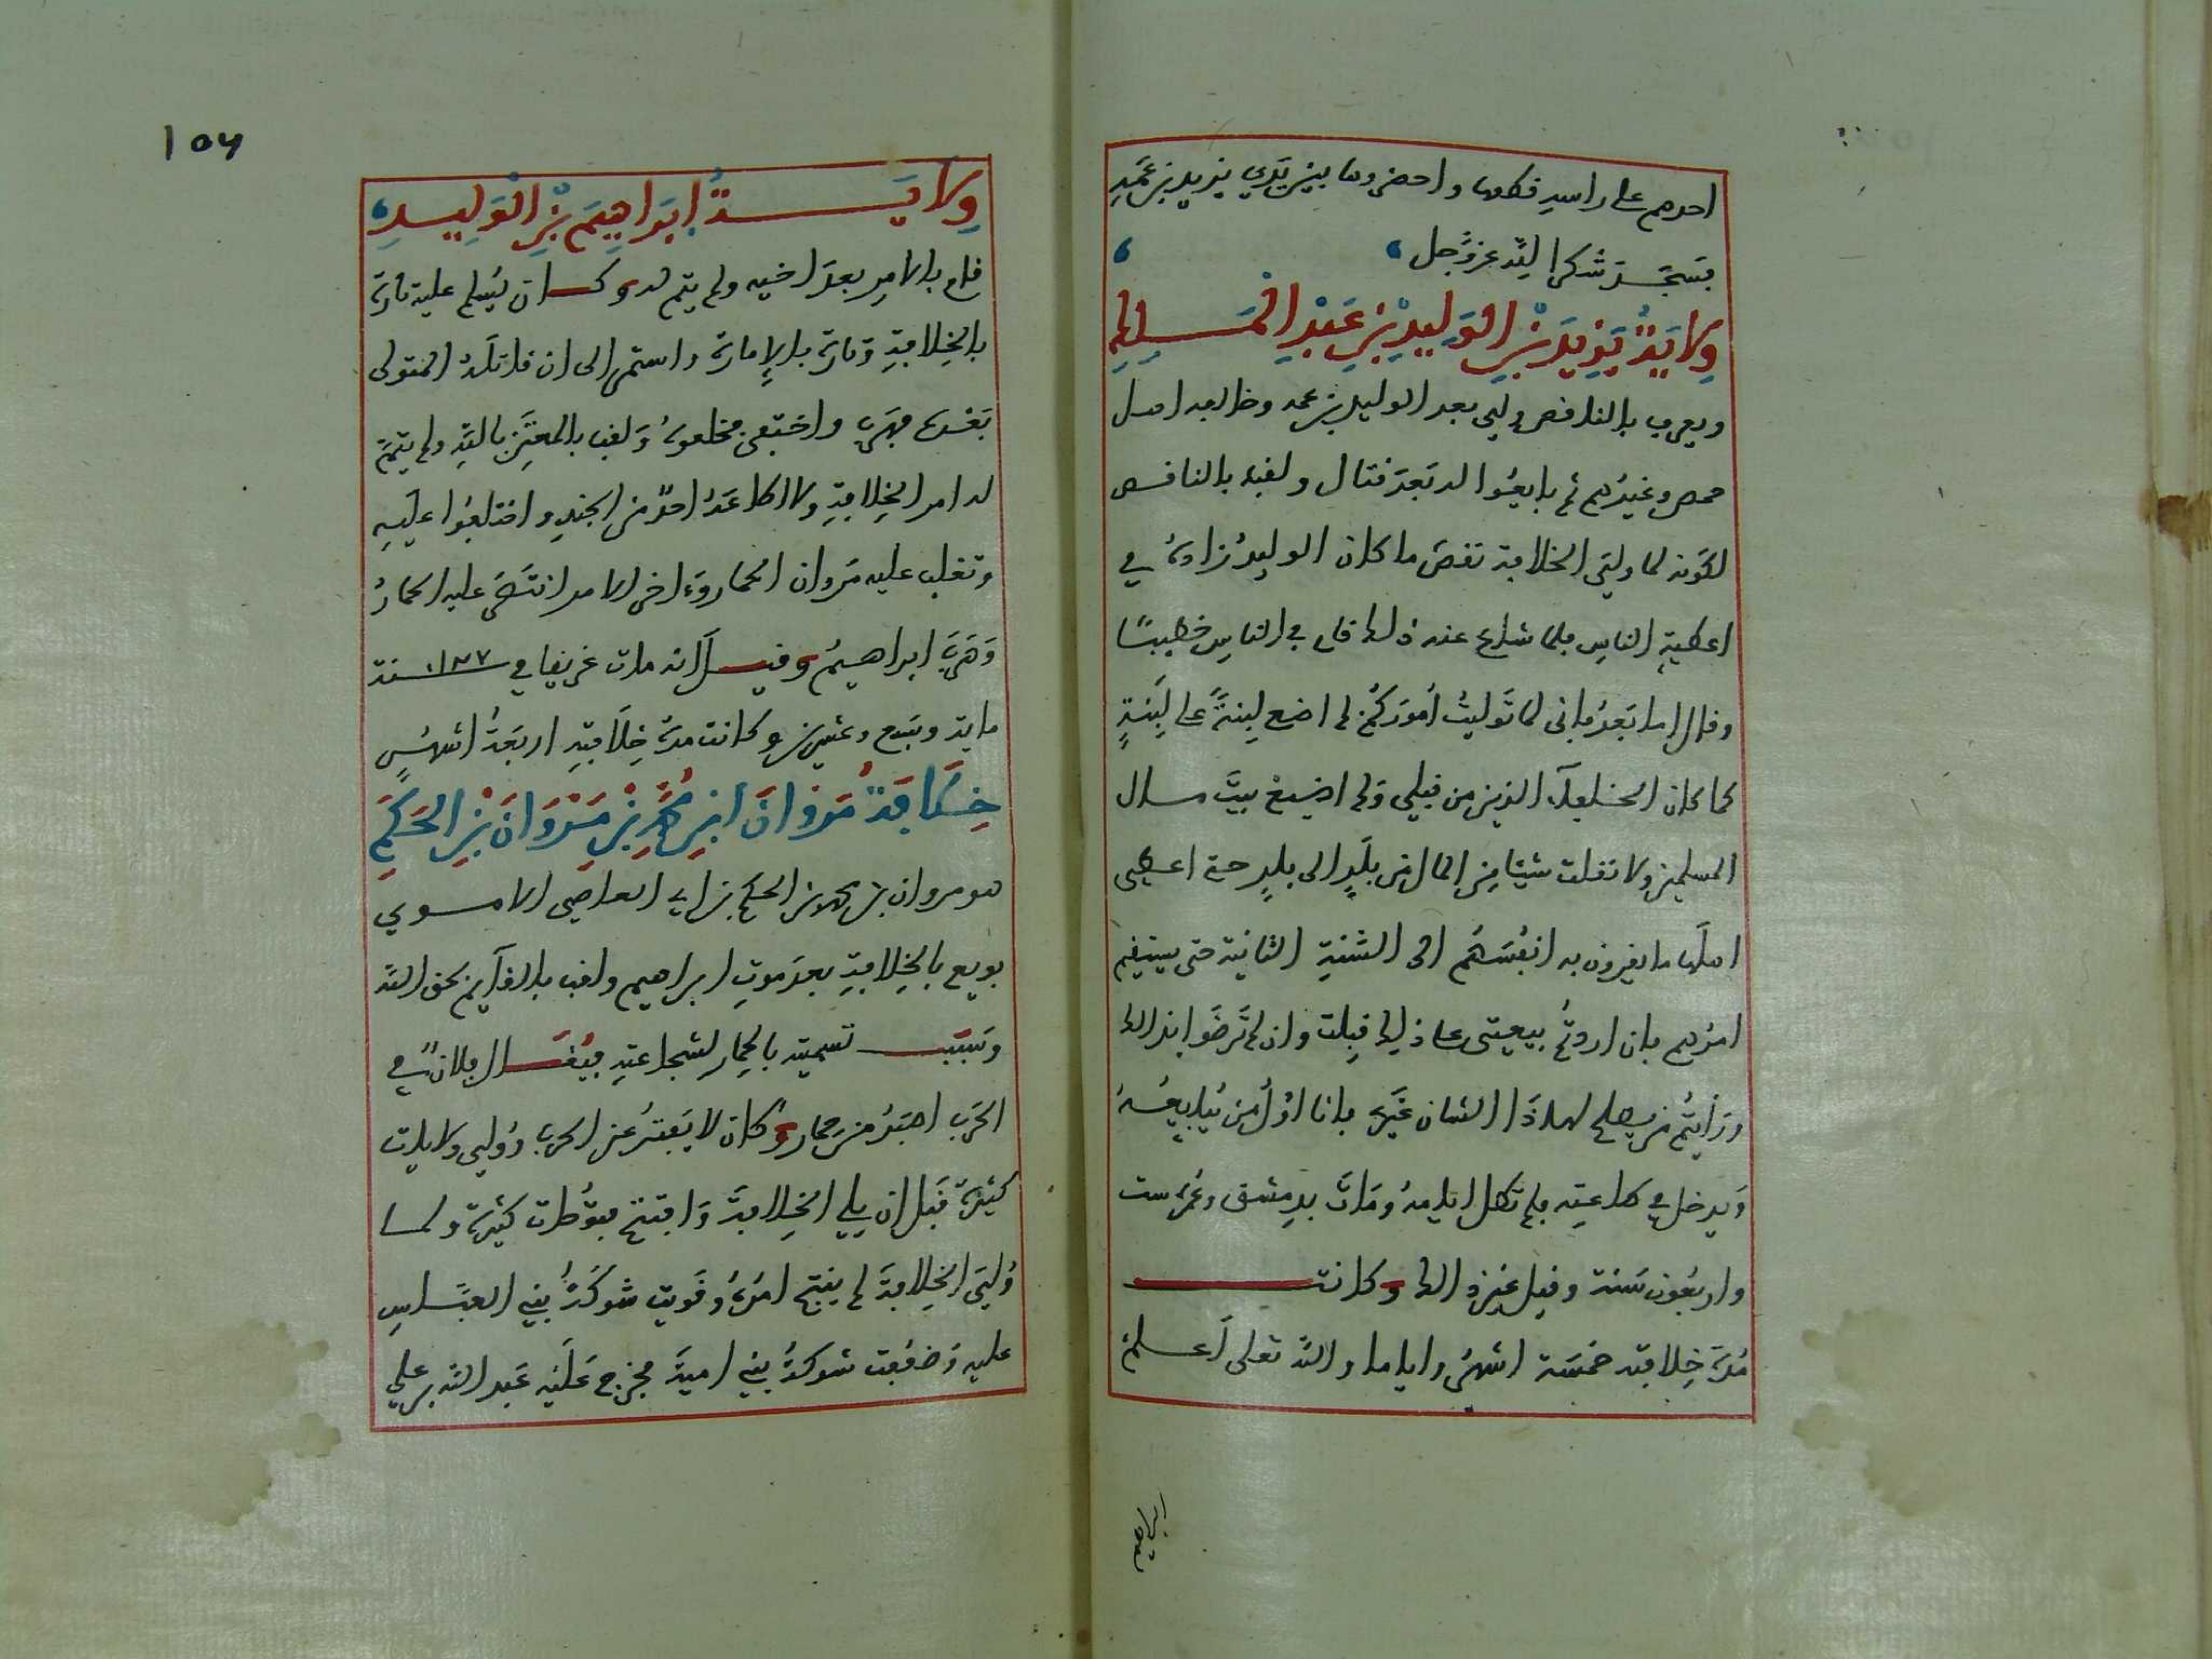 احدهم على راسه فقطعها واحضروها بين يدي يزيد بن عمه
فسجد شكرا لله عز وجل
ولاية يزيد بن الوليد بن عبد الملك
ويعرف بالناقص ولي بعد الوليد بن عمه وخالفه اهل
حمص وغيرهم ثم بايعوا له بعد قتال ولقبه بالناقص
لكونه لما ولي الخلافة نقص ما كان الوليد زاده في
اعطية الناس فلما شاع عنه ذلك قام في الناس خطيبًا
وقال اما بعد فاني لما توليت أموركم لم اضع لبنة على لبنة
كما كان الخلفاء الذين من قبلي ولم اضيع بيت مال
المسلمين ولا نقلت شيئا من المال من بلد الى بلد حتى اعطي
اهلها ما يقيمون به انفسهم الى السنة الثانية حتى يستقيم
امرهم فان اردتم بيعتي على ذلك قبلت وان لم ترضوا بذالك
ورأيتم من يصلح لهاذا الشان غيري فانا اول من يبايعه
ويدخل في طاعته فلم تطل ايامه ومات بدمشق وعمره ست
واربعون سنة وقيل غير ذالك وكانت
مدة خلافته خمسة اشهر واياما والله تعلى أعلم
ولاية ابراهيم بن الوليد
قام بالامر بعد اخيه ولم يتم له وكان يسلم عليه تارة
بالخلافة وتارة بالإمارة واستمر الى ان قاتله المتولى
بعده فهرب واختفى مخلوعا ولقب بالمعتز بالله ولم يتم
له امر الخلافة ولا اطاعه احد من الجند واختلفوا عليه
وتغلب عليه مروان الحمار واخر الامر انتصر عليه الحمار
وهرب ابراهيم وقيل انه مات غريقا في سنة ١٢٧
ماية وسبع وعشرين وكانت مدة خلافته اربعة اشهر
خلافة مروان ابن محمد بن مروان بن الحكم
هو مروان بن محمد بن الحكم بن ابي العاصي الاموي
بويع بالخلافة بعد موت ابراهيم ولقب بالقآيم بحق الله
وسبب تسميته بالحمار لشجاعته فيقال فلان في
الحرب اصبر من حمار وكان لا يفتر عن الحرب وولي ولايات
كثيرة قبل ان يلي الخلافة وافتتح فتوحات كثيرة ولما
ولي الخلافة لم يفتح امره وقويت شوكة بني العباس
عليه وضعفت شوكة بني امية فخرج عليه عبد الله بن علي